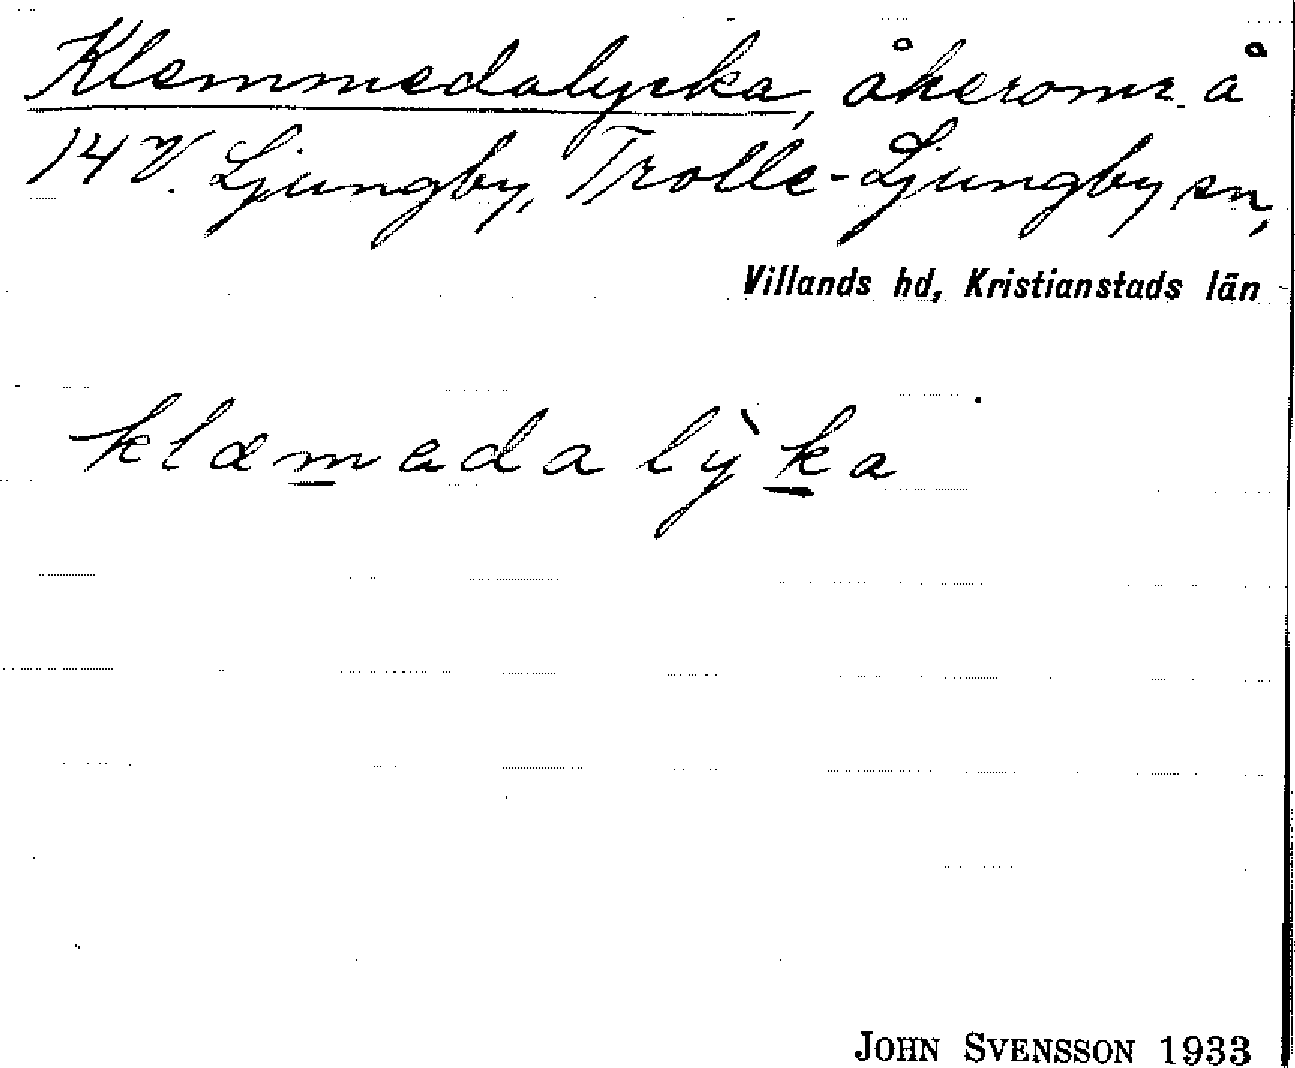 Klemmedalycka, åkeromr. å
14 V. Ljungby, Trolle-Ljungby sn,
Villands hd, Kristianstads län
klæmeda lỳka
JOHN SVENSSON 1933